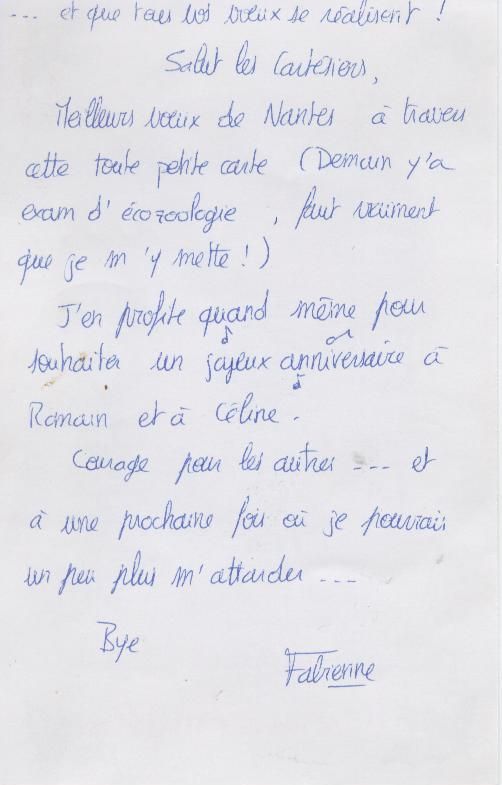 ... et que tous vos voeux se réalisent !
Salut les Cartésiens,
Meilleurs voeux de Nantes à travers
cette toute petite carte (Demain y'a
exam d'écozoologie, faut vraiment
que je m'y mette !)
J'en profite quand même pour
souhaiter un joyeux anniversaire à
Romain et à Céline.
Courage pour les autres --- et
à une prochaine fois où je pourrais
un peu plus m'attarder ---
Bye
Fabienne